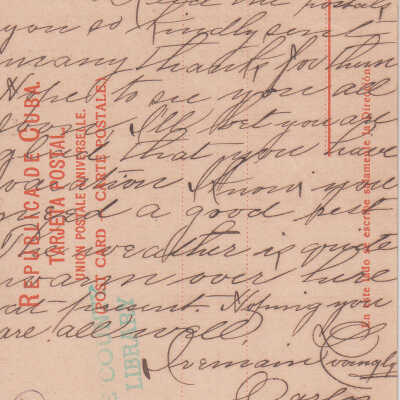 Recd the postals
you so kindly sent
many thanks for them
Hope to see you all
soon. I'll bet you are
glad that you have
vacation. I know you
need a good rest
The weather is quite
warm over here
at present. Hoping you
are all well,
I remain Lovingly
Carlos
REPUBLICA DE CUBA.
TARJETA POSTAL
UNION POSTALE UNIVERSELLE.
(POST CARD CARTE POSTALE)
En este lado se escribe solamente la Dirección
COUNTY
LIBRARY